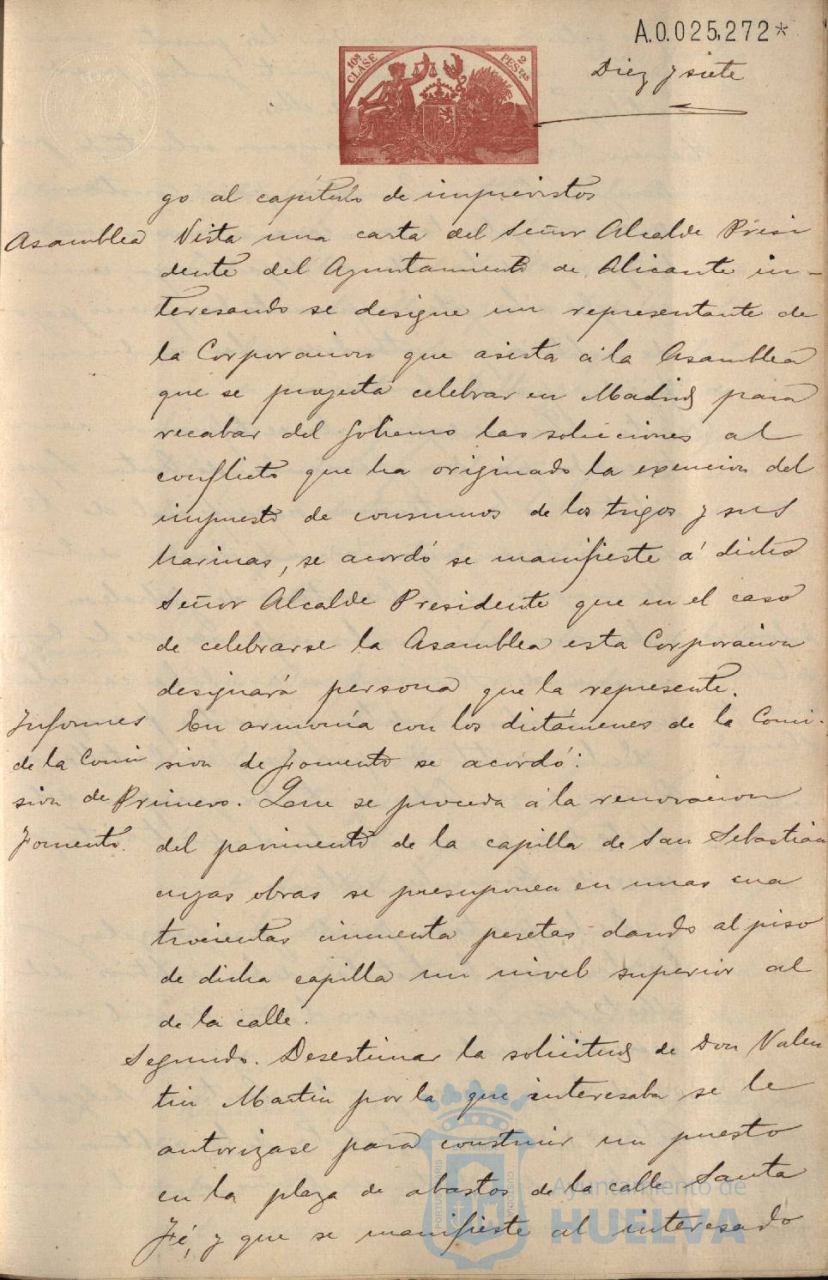 A.0.025,272*
10ª CLASE
2 PESTAS
Diez y siete
go al capítulo de imprevistos
Asamblea
Vista una carta del Señor Alcalde Presi
dente del Ayuntamiento de Alicante in-
teresando se designe un representante de
la Corporacion que asista á la Asamblea
que se proyecta celebrar en Madrid para
recabar del Gobierno las soluciones al
conflicto que ha originado la exencion del
impuesto de consumos de los trigos y sus
harinas, se acordó se manifieste á dicho
Señor Alcalde Presidente que en el caso
de celebrarse la Asamblea esta Corporacion
designará persona que la represente.
Informes
de la Comi
sion de
Fomento.
En armonía con los dictámenes de la Comi-
sion de Fomento se acordó:
Primero. Que se proceda á la renovacion
del pavimento de la capilla de San Sebastián
cuyas obras se presuponen en unas cua
trocientas cincuenta pesetas dando al piso
de dicha capilla un nivel superior al
de la calle.
Segundo. Desestimar la solicitud de Don Valen
tin Martin por la que interesaba se le
autorizase para construir un puesto
en la plaza de abastos de la calle Santa
Fé, y que se manifieste al interesado
Ayuntamiento de
HUELVA